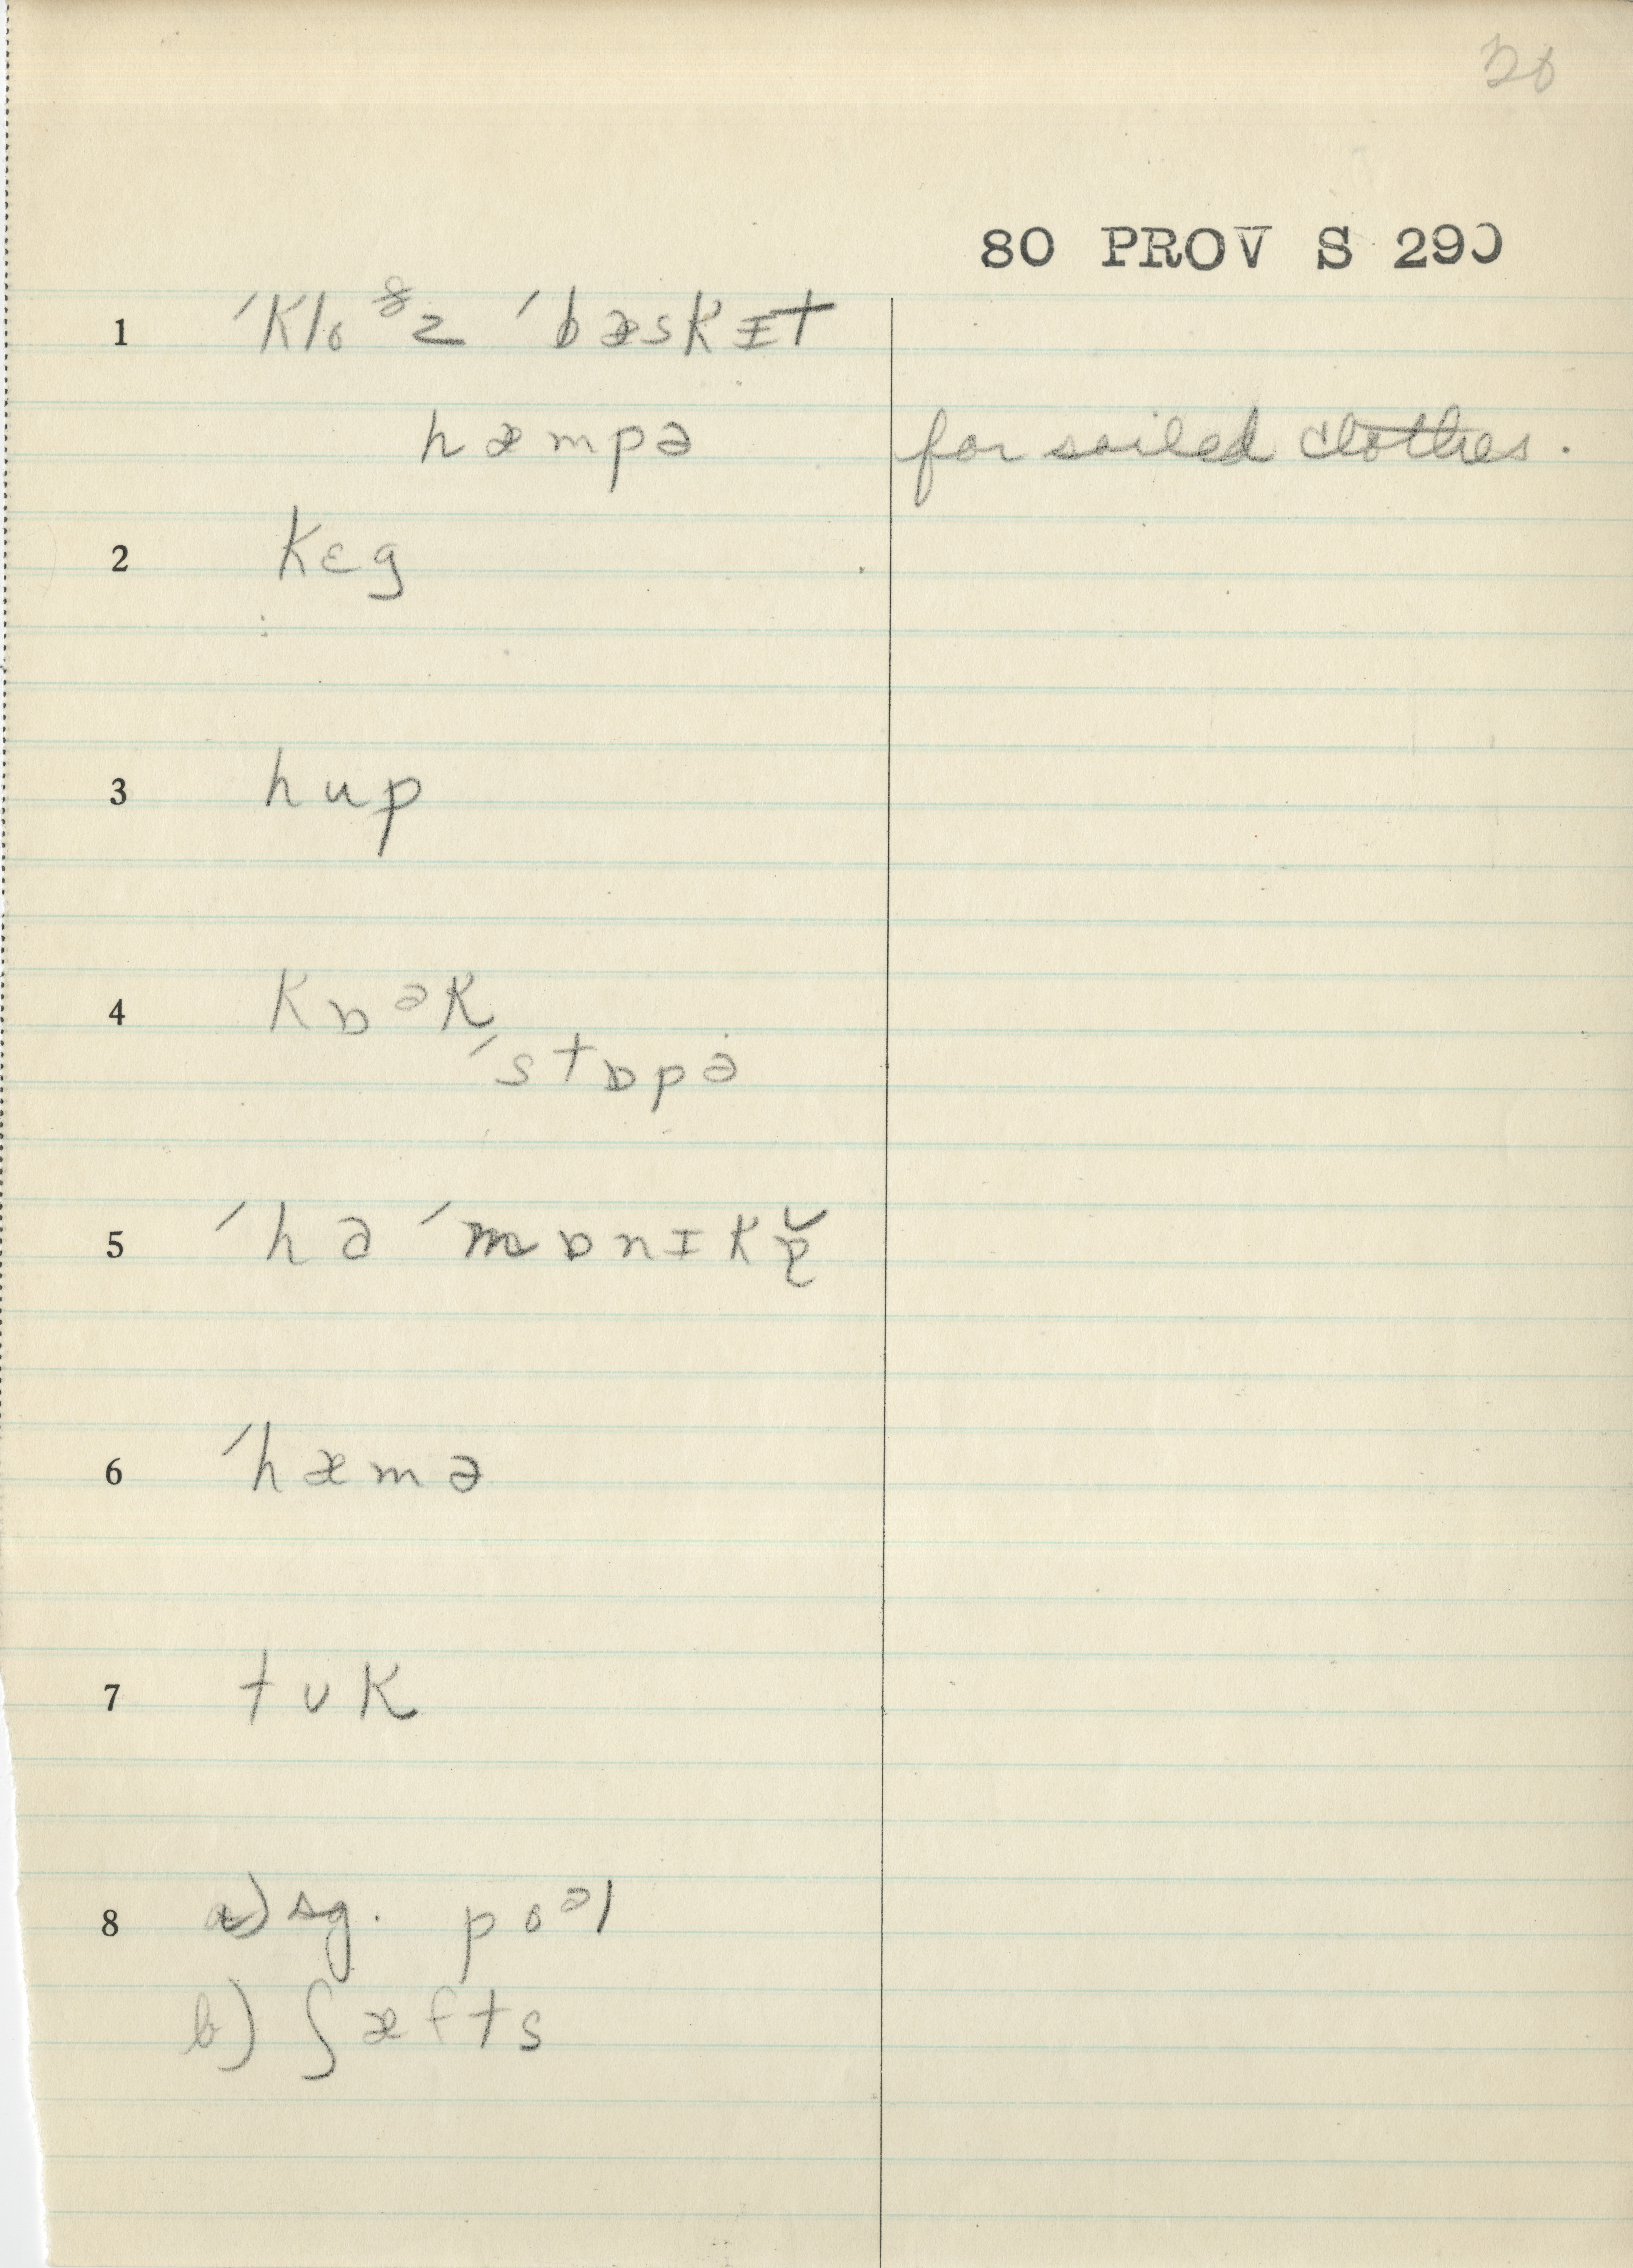 26
80 PROV S 290
1 ˈkloᶞz ˈbæskɪt
hæmpə for soiled clothes.
2 kɛg
3 hup
4 kɒᵊk
ˈstɒpə
5 ˈhɑ ˈmɒnɪk
6 ˈhæmə
7 tʊk
8 a) sg. poᵊl
b) ʃæfts